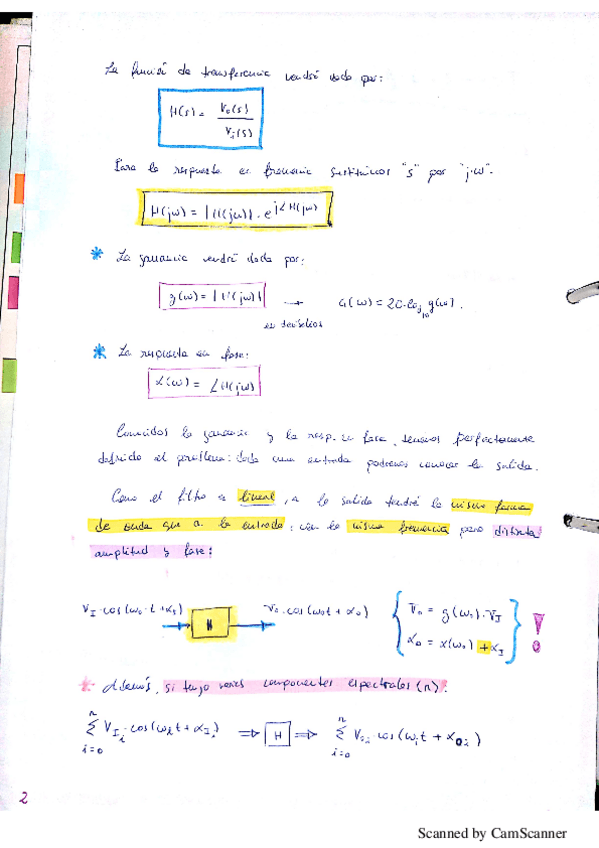 La función de transferencia vendrá dada por:
H(s) = Vo(s) / Vi(s)
Para la respuesta en frecuencia sustituimos "s" por "j·w".
H(jw) = |H(jw)| · e^{j∠H(jw)}
* La ganancia vendrá dada por:
g(w) = |H(jw)| → G(w) = 20·log₁₀ g(w).
en decibelios
* La respuesta en fase:
α(w) = ∠H(jw)
Conocidos la ganancia y la resp. en fase, tenemos perfectamente
definido el problema: dada una entrada podremos conocer la salida.
Como el filtro es lineal, a la salida tendré la misma forma
de onda que a la entrada, con la misma frecuencia pero distinta
amplitud y fase:
V_I·cos(w₀·t + α_I) → H → V₀·cos(w₀t + α₀) { V₀ = g(w₀)·V_I
α₀ = α(w₀) + α_I } !
* Además, si tengo varias componentes espectrales (n):
n Σ i=0 V_Ii·cos(w_i t + α_Ii) ⇒ H ⇒ n Σ i=0 V₀i·cos(w_i t + α₀i)
2
Scanned by CamScanner